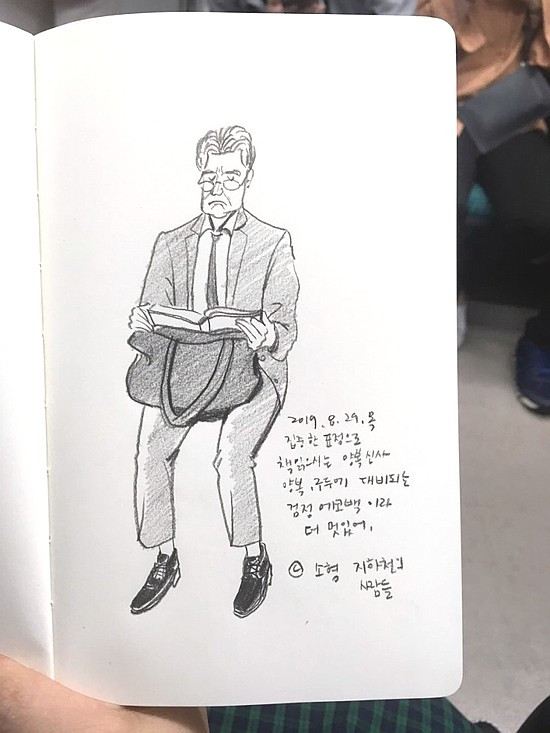 2019. 8. 29. 목
집중한 표정으로
책읽으시는 양복신사
양복, 구두에 대비되는
검정 에코백 이라
더 멋있어.
ⓒ 소형 지하철의
사람들